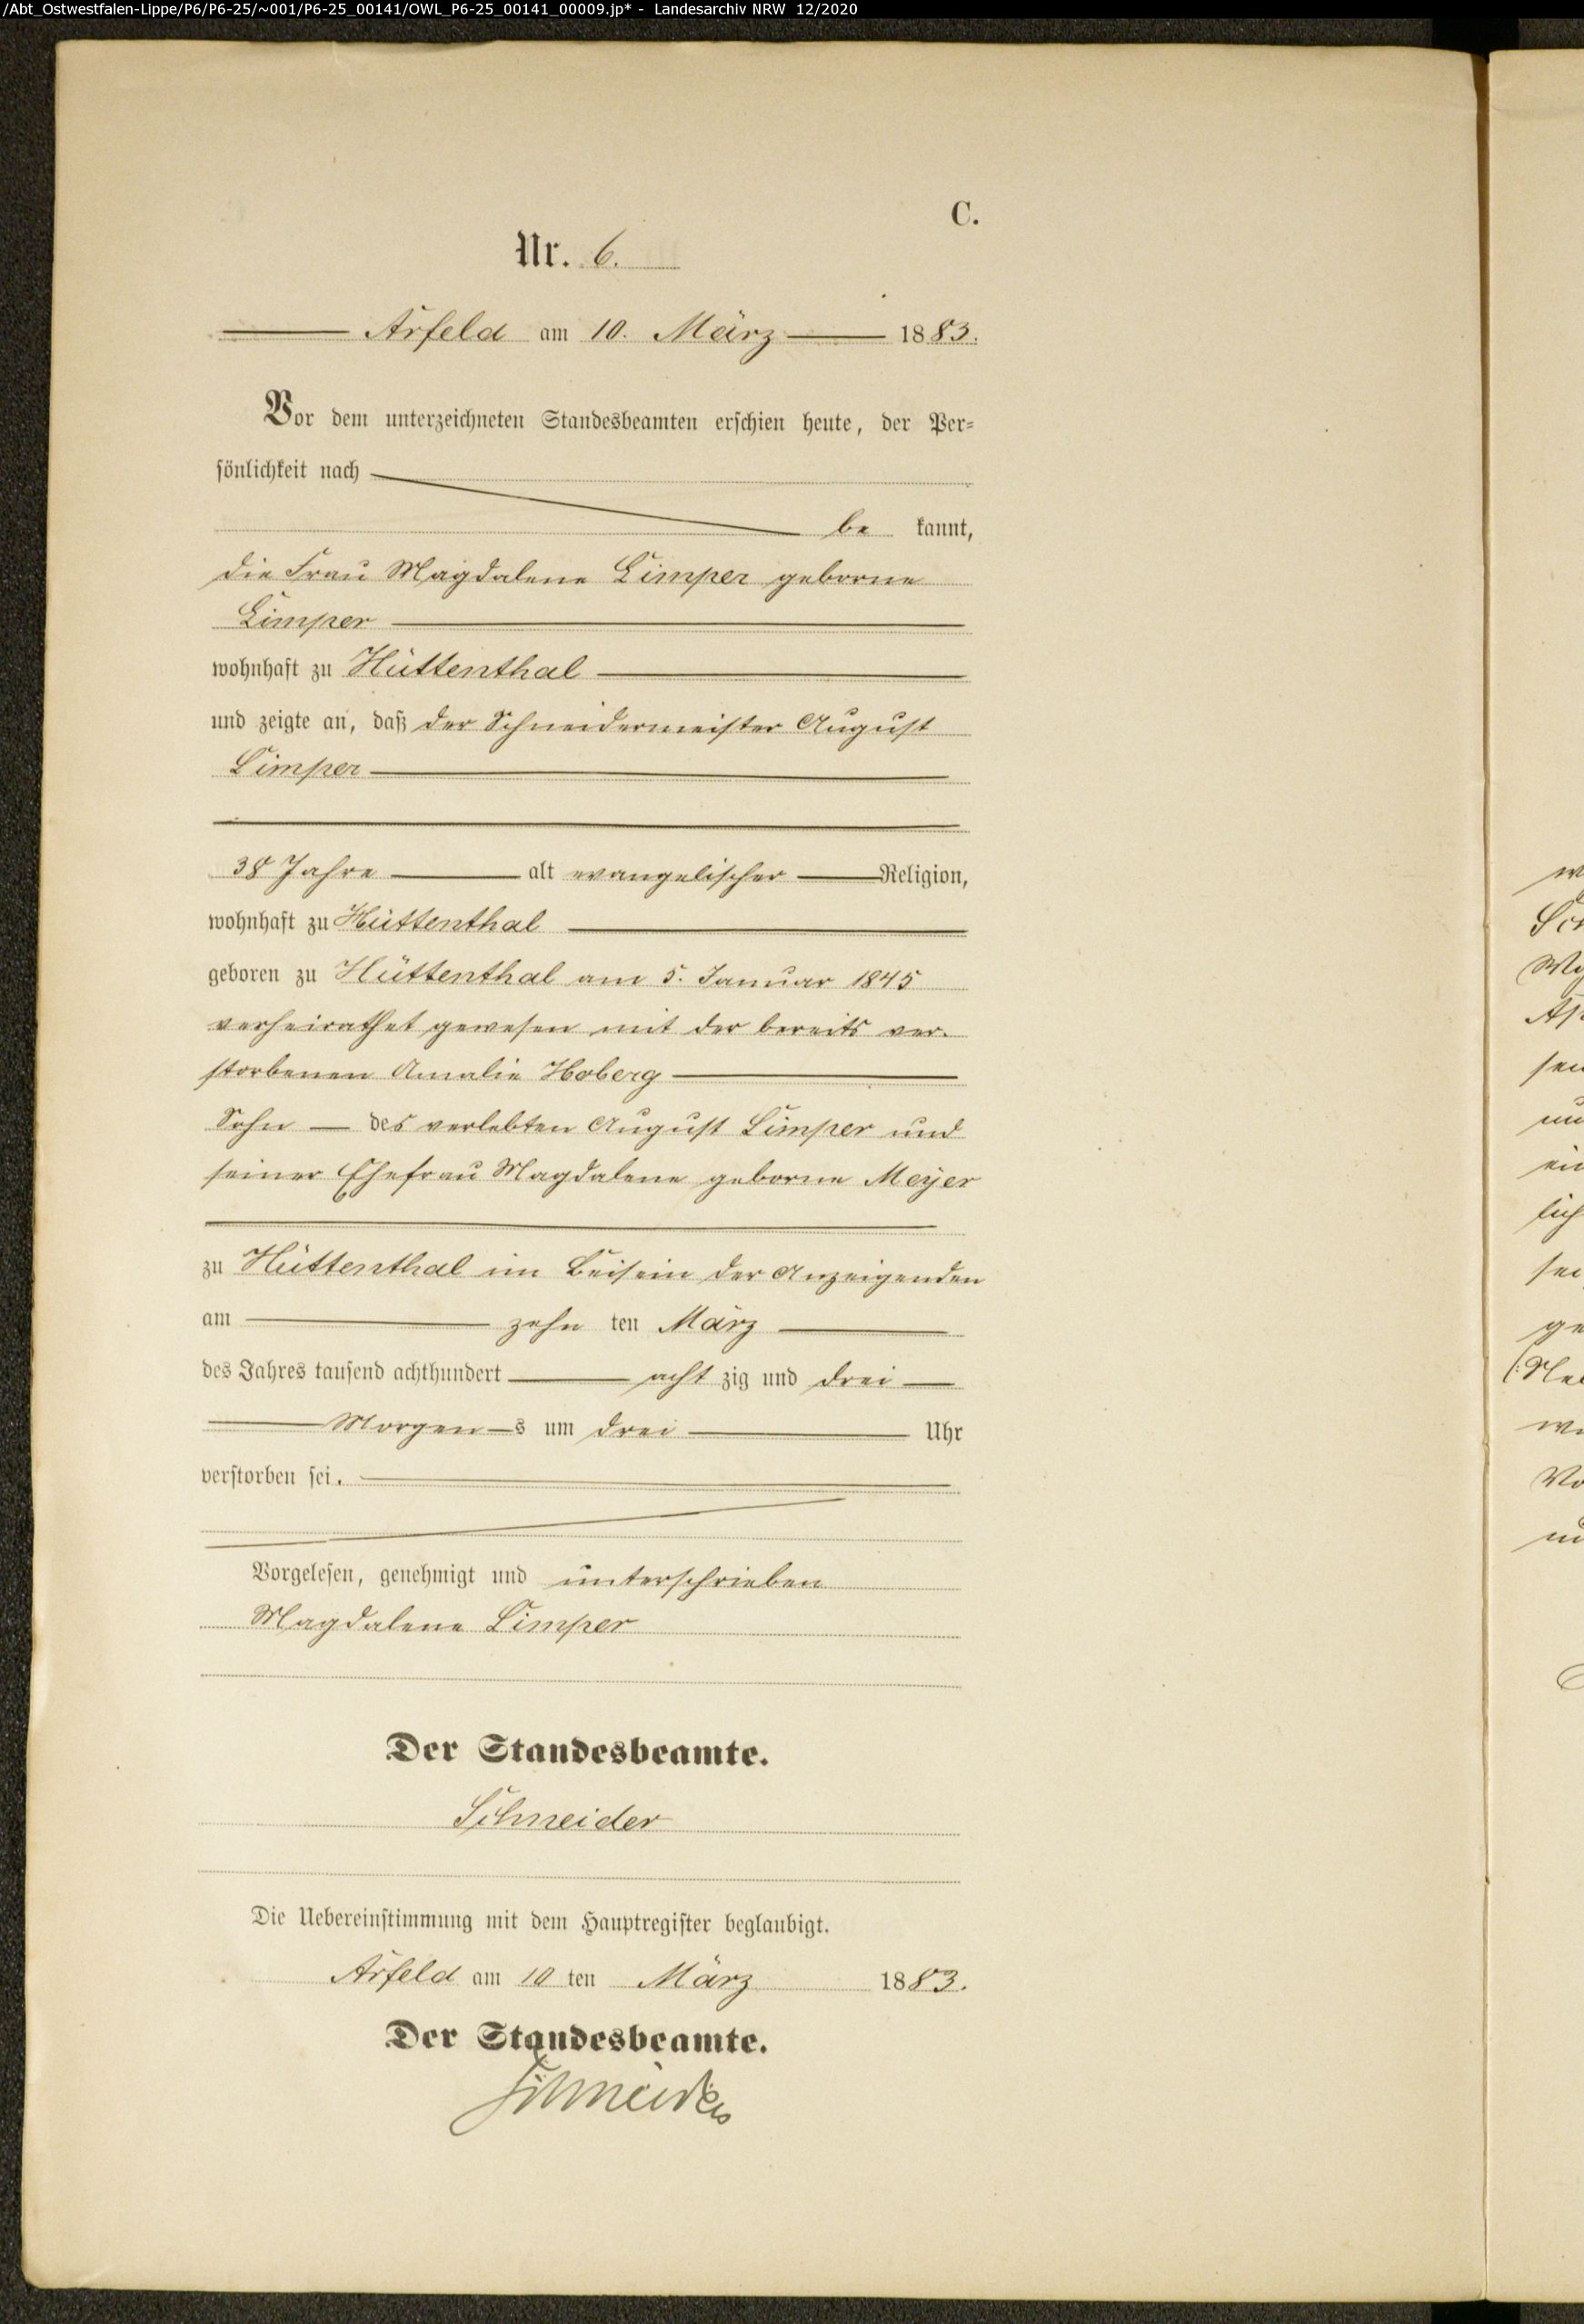 /Abt_Ostwestfalen-Lippe/P6/P6-25/~001/P6-25_00141/OWL_P6-25_00141_00009.jp* - Landesarchiv NRW 12/2020
C.
Nr. 6.
Arfeld am 10. März 1883.
Vor dem unterzeichneten Standesbeamten erschien heute, der Per-
sönlichkeit nach
be kannt,
die Frau Magdalene Limper geborne
Limper
wohnhaft zu Hüttenthal
und zeigte an, daß der Schneidermeister August
Limper
38 Jahre alt evangelischer Religion,
wohnhaft zu Hüttenthal
geboren zu Hüttenthal am 5. Januar 1845
verheirathet gewesen mit der bereits ver-
storbenen Amalie Hoberg
Sohn des verlebten August Limper und
seiner Ehefrau Magdalene geborne Meyer
zu Hüttenthal im Beisein der Anzeigenden
am zehn ten März
des Jahres tausend achthundert acht zig und drei
Morgens um drei Uhr
verstorben sei.
Vorgelesen, genehmigt und unterschrieben
Magdalene Limper
Der Standesbeamte.
Schneider
Die Uebereinstimmung mit dem Hauptregister beglaubigt.
Arfeld am 10 ten März 1883.
Der Standesbeamte.
Schneider